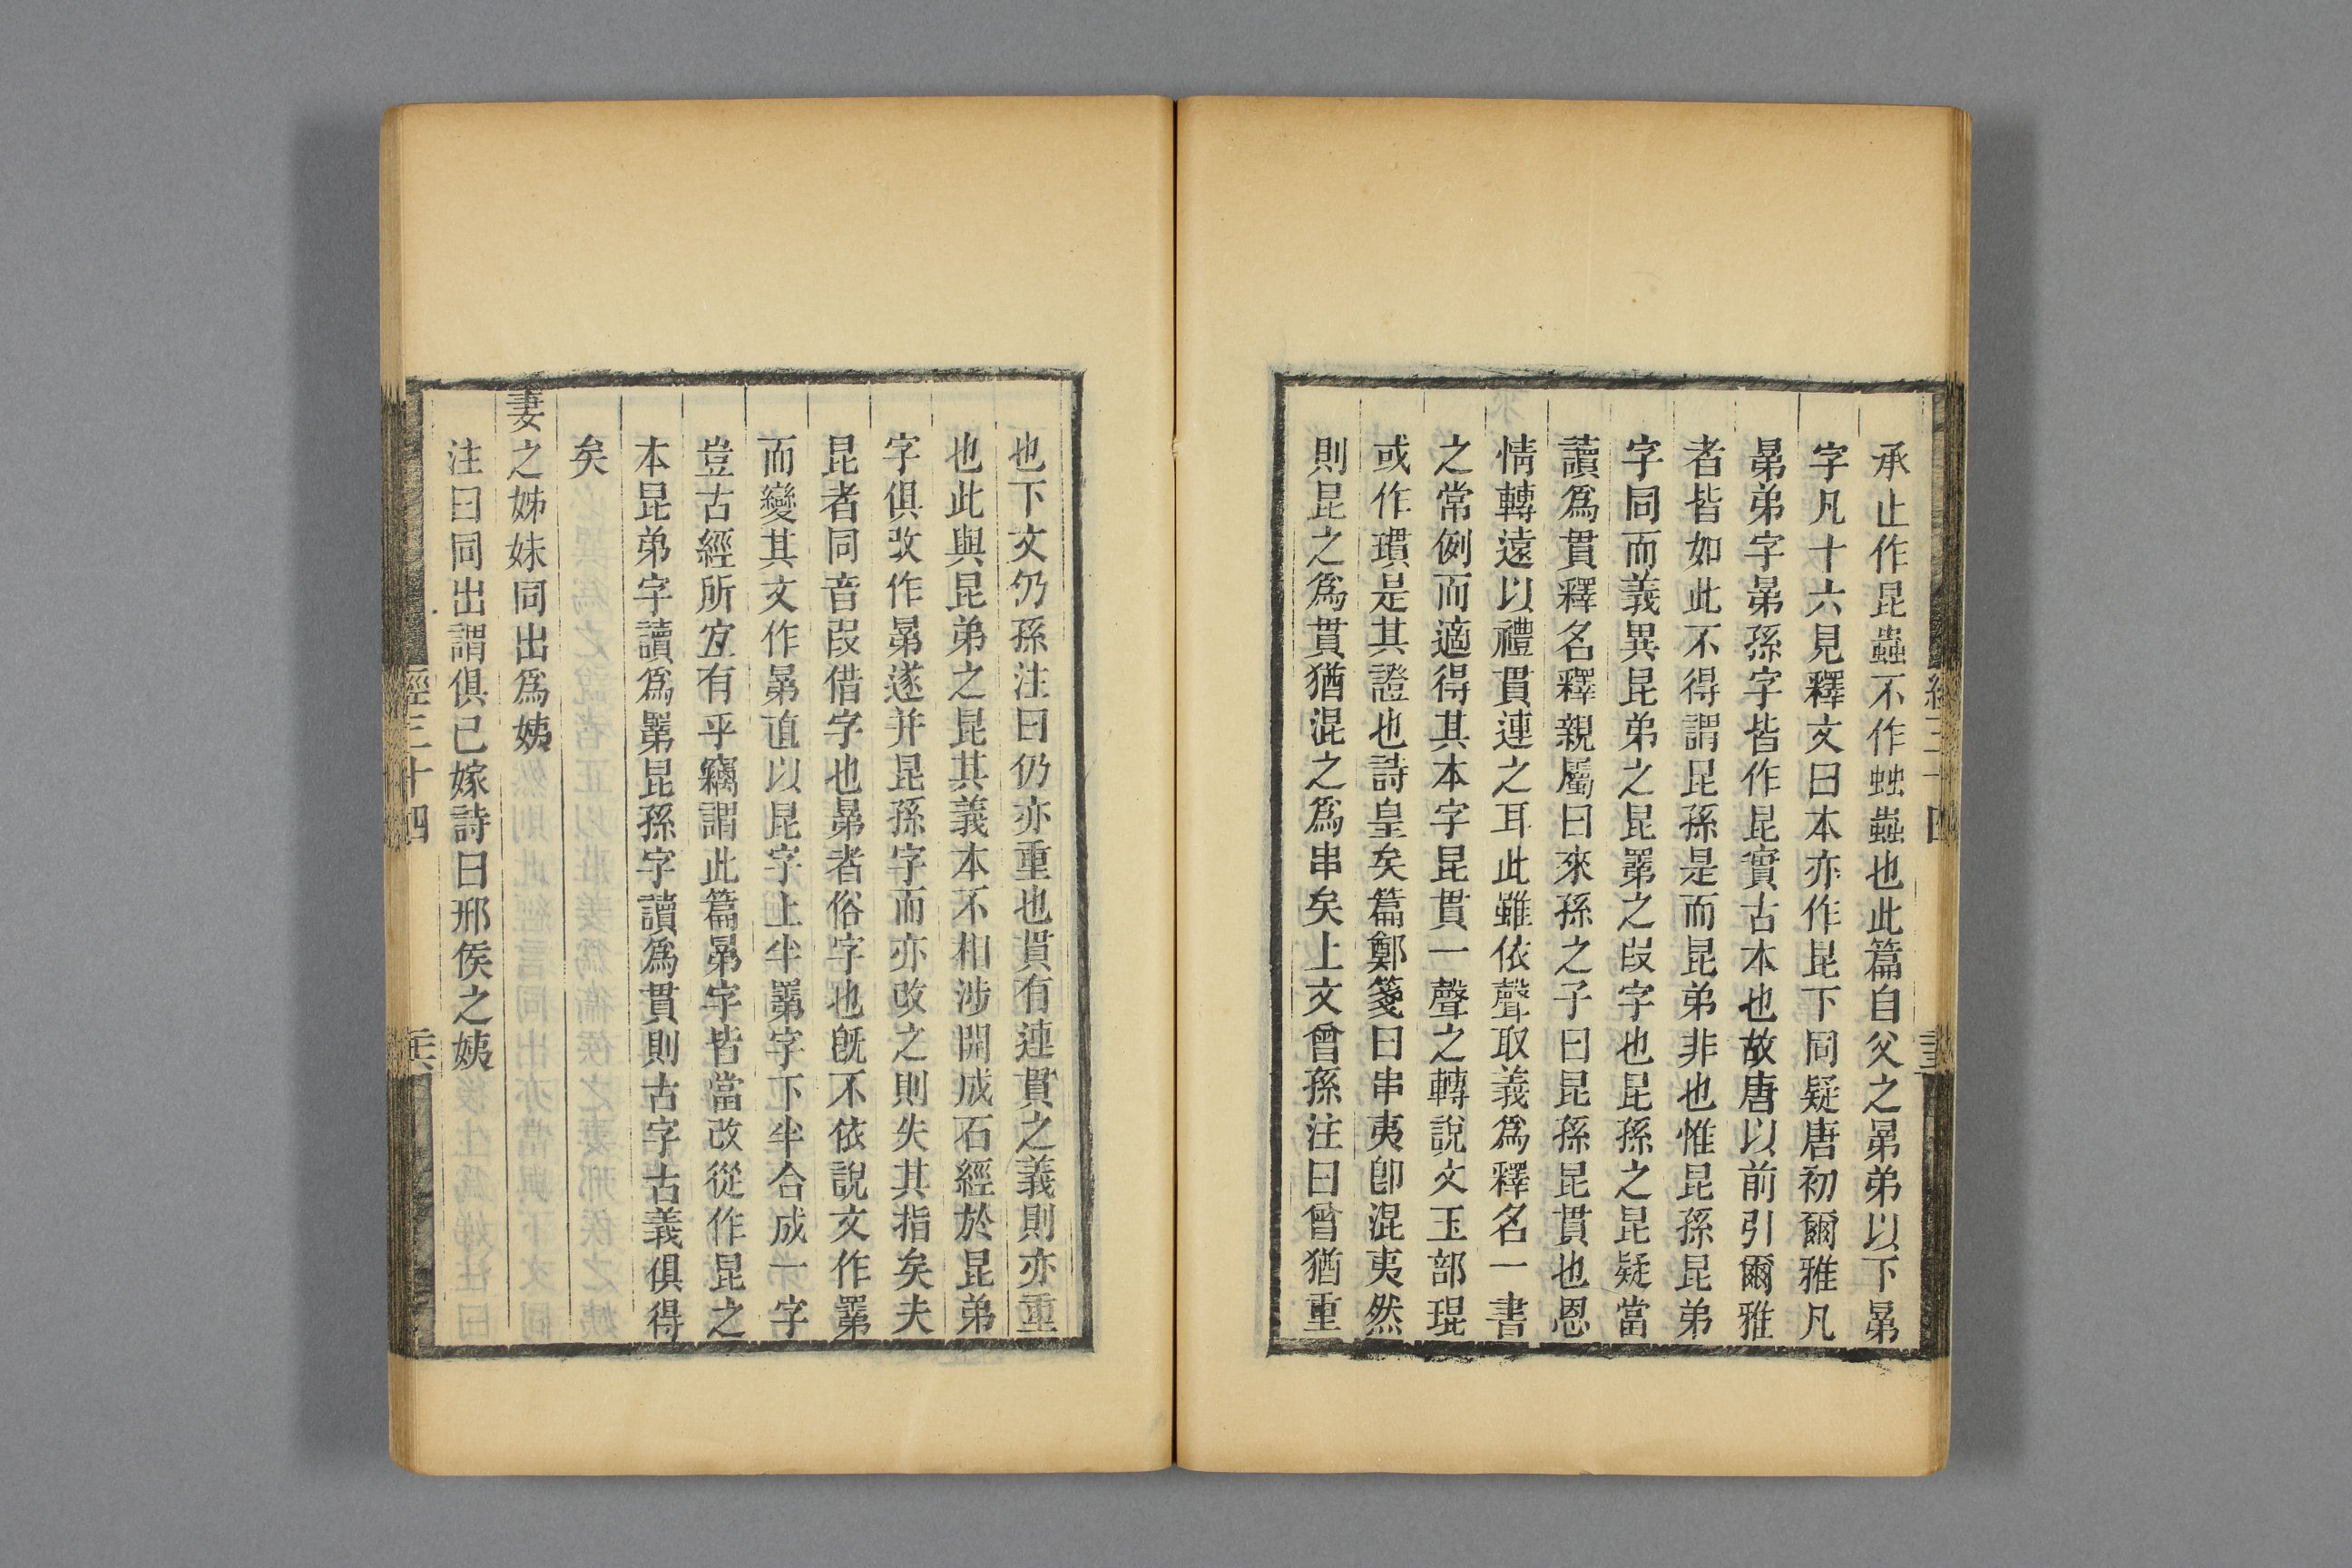 承止作昆蟲不作䖵蟲也此篇自父之晜弟以下晜
字凡十六見釋文曰本亦作昆下同疑唐初爾雅凡
晜弟字晜孫字皆作昆實古本也故唐以前引爾雅
者皆如此不得謂昆孫是而昆弟非也惟昆孫昆弟
字同而義異昆弟之昆𥊽之叚字也昆孫之昆疑當
讀爲貫釋名釋親屬曰來孫之子曰昆孫昆貫也恩
情轉遠以禮貫連之耳此雖依聲取義爲釋名一書
之常例而適得其本字昆貫一聲之轉說文玉部琨
或作瑻是其證也詩皇矣篇鄭箋曰串夷卽混夷然
則昆之爲貫猶混之爲串矣上文曾孫注曰曾猶重
也下文仍孫注曰仍亦重也貫有連貫之義則亦重
也此與昆弟之昆其義本不相涉開成石經於昆弟
字俱改作晜遂并昆孫字而亦改之則失其指矣夫
昆者同音叚借字也晜者俗字也旣不依說文作𥊽
而變其文作晜直以昆字上半𥊽字下半合成一字
豈古經所宜有乎竊謂此篇晜字皆當改從作昆之
本昆弟字讀爲𥊽昆孫字讀爲貫則古字古義俱得
矣
妻之姊妹同出爲姨
注曰同出謂俱已嫁詩曰邢侯之姨
經三十四